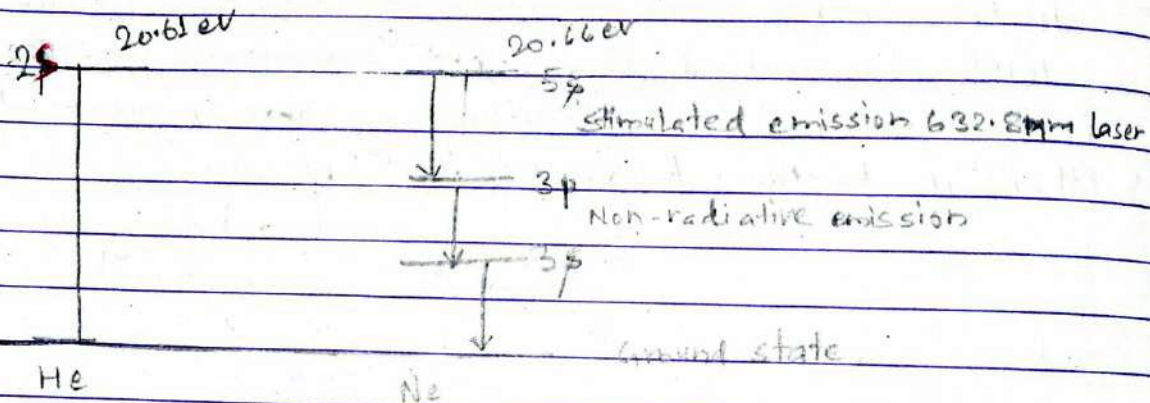 20.61 eV
20.66 eV
2s
5s
Stimulated emission 632.8nm laser
3p
Non-radiative emission
3s
Ground state
He
Ne